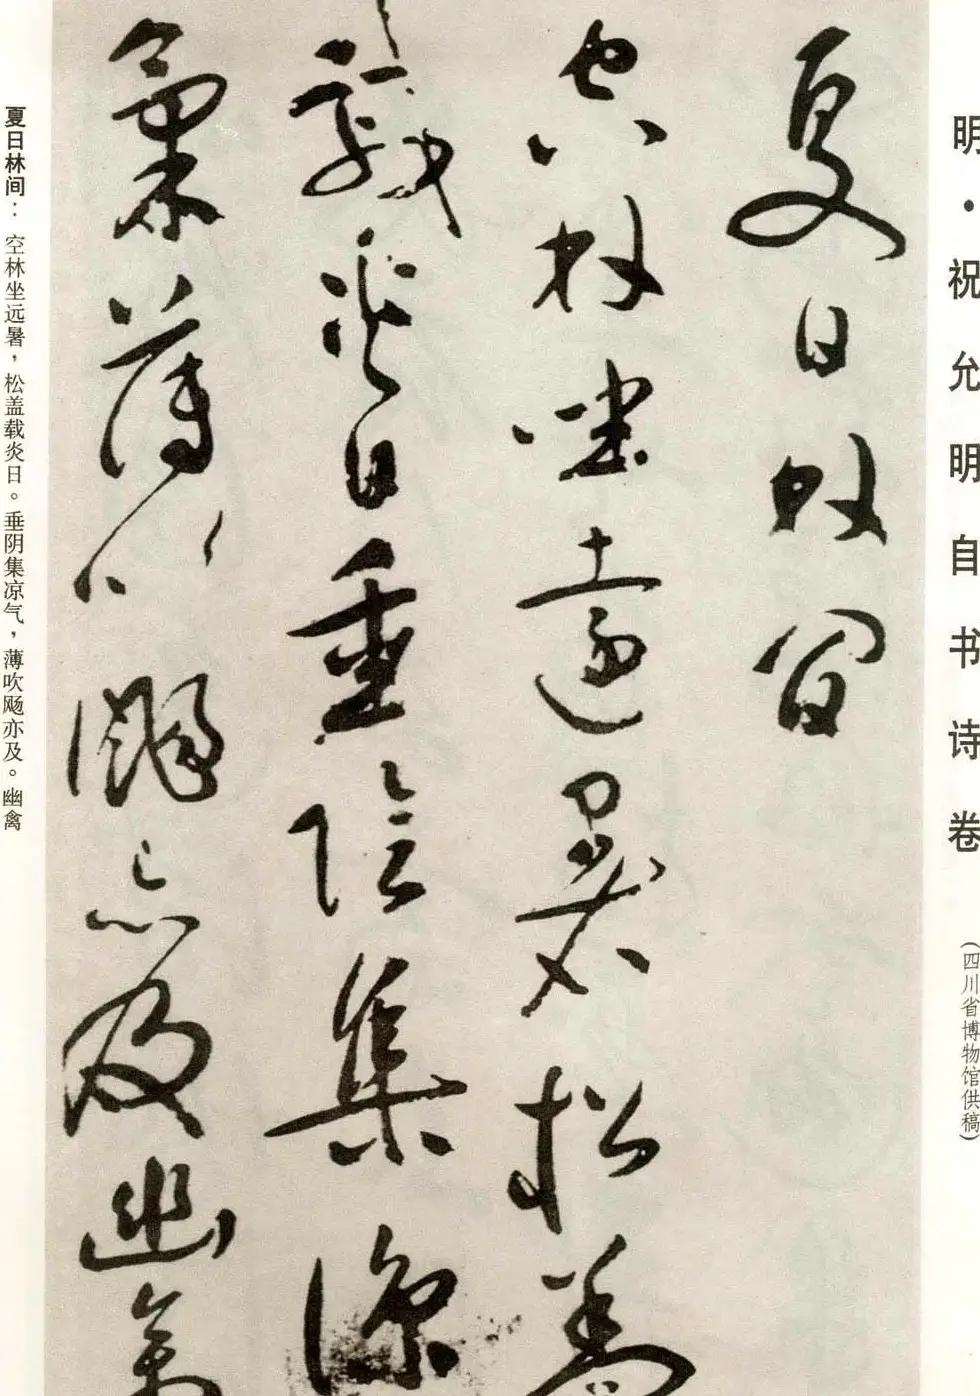 明·祝允明自书诗卷
(四川省博物馆供稿)
夏日林间
空林坐遠暑松蓋
載炎日垂陰集涼
氣薄吹颺亦及幽禽
夏日林间：空林坐远暑，松盖载炎日。垂阴集凉气，薄吹飏亦及。幽禽